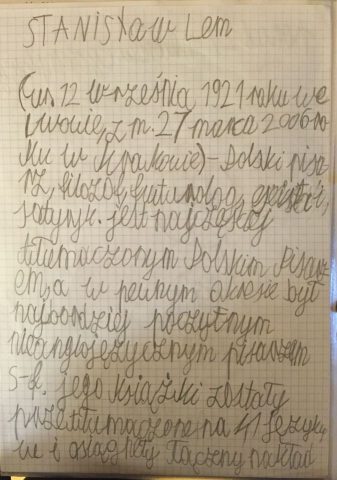 STANISŁAW Lem
(ur. 12 września 1921 roku we
Lwowie, zm. 27 marca 2006 ro
ku w Krakowie) - Polski pisa
rz, filozof, futurolog, eseista,
satyryk. jest najczęściej
tłumaczonym Polskim Pisarz
em, a w pewnym okresie był
najbardziej poczytnym
nieanglojęzycznym pisarzem
s-f. jego książki zostały
przetłumaczone na 41 język
we i osiągnęły łączny nakład